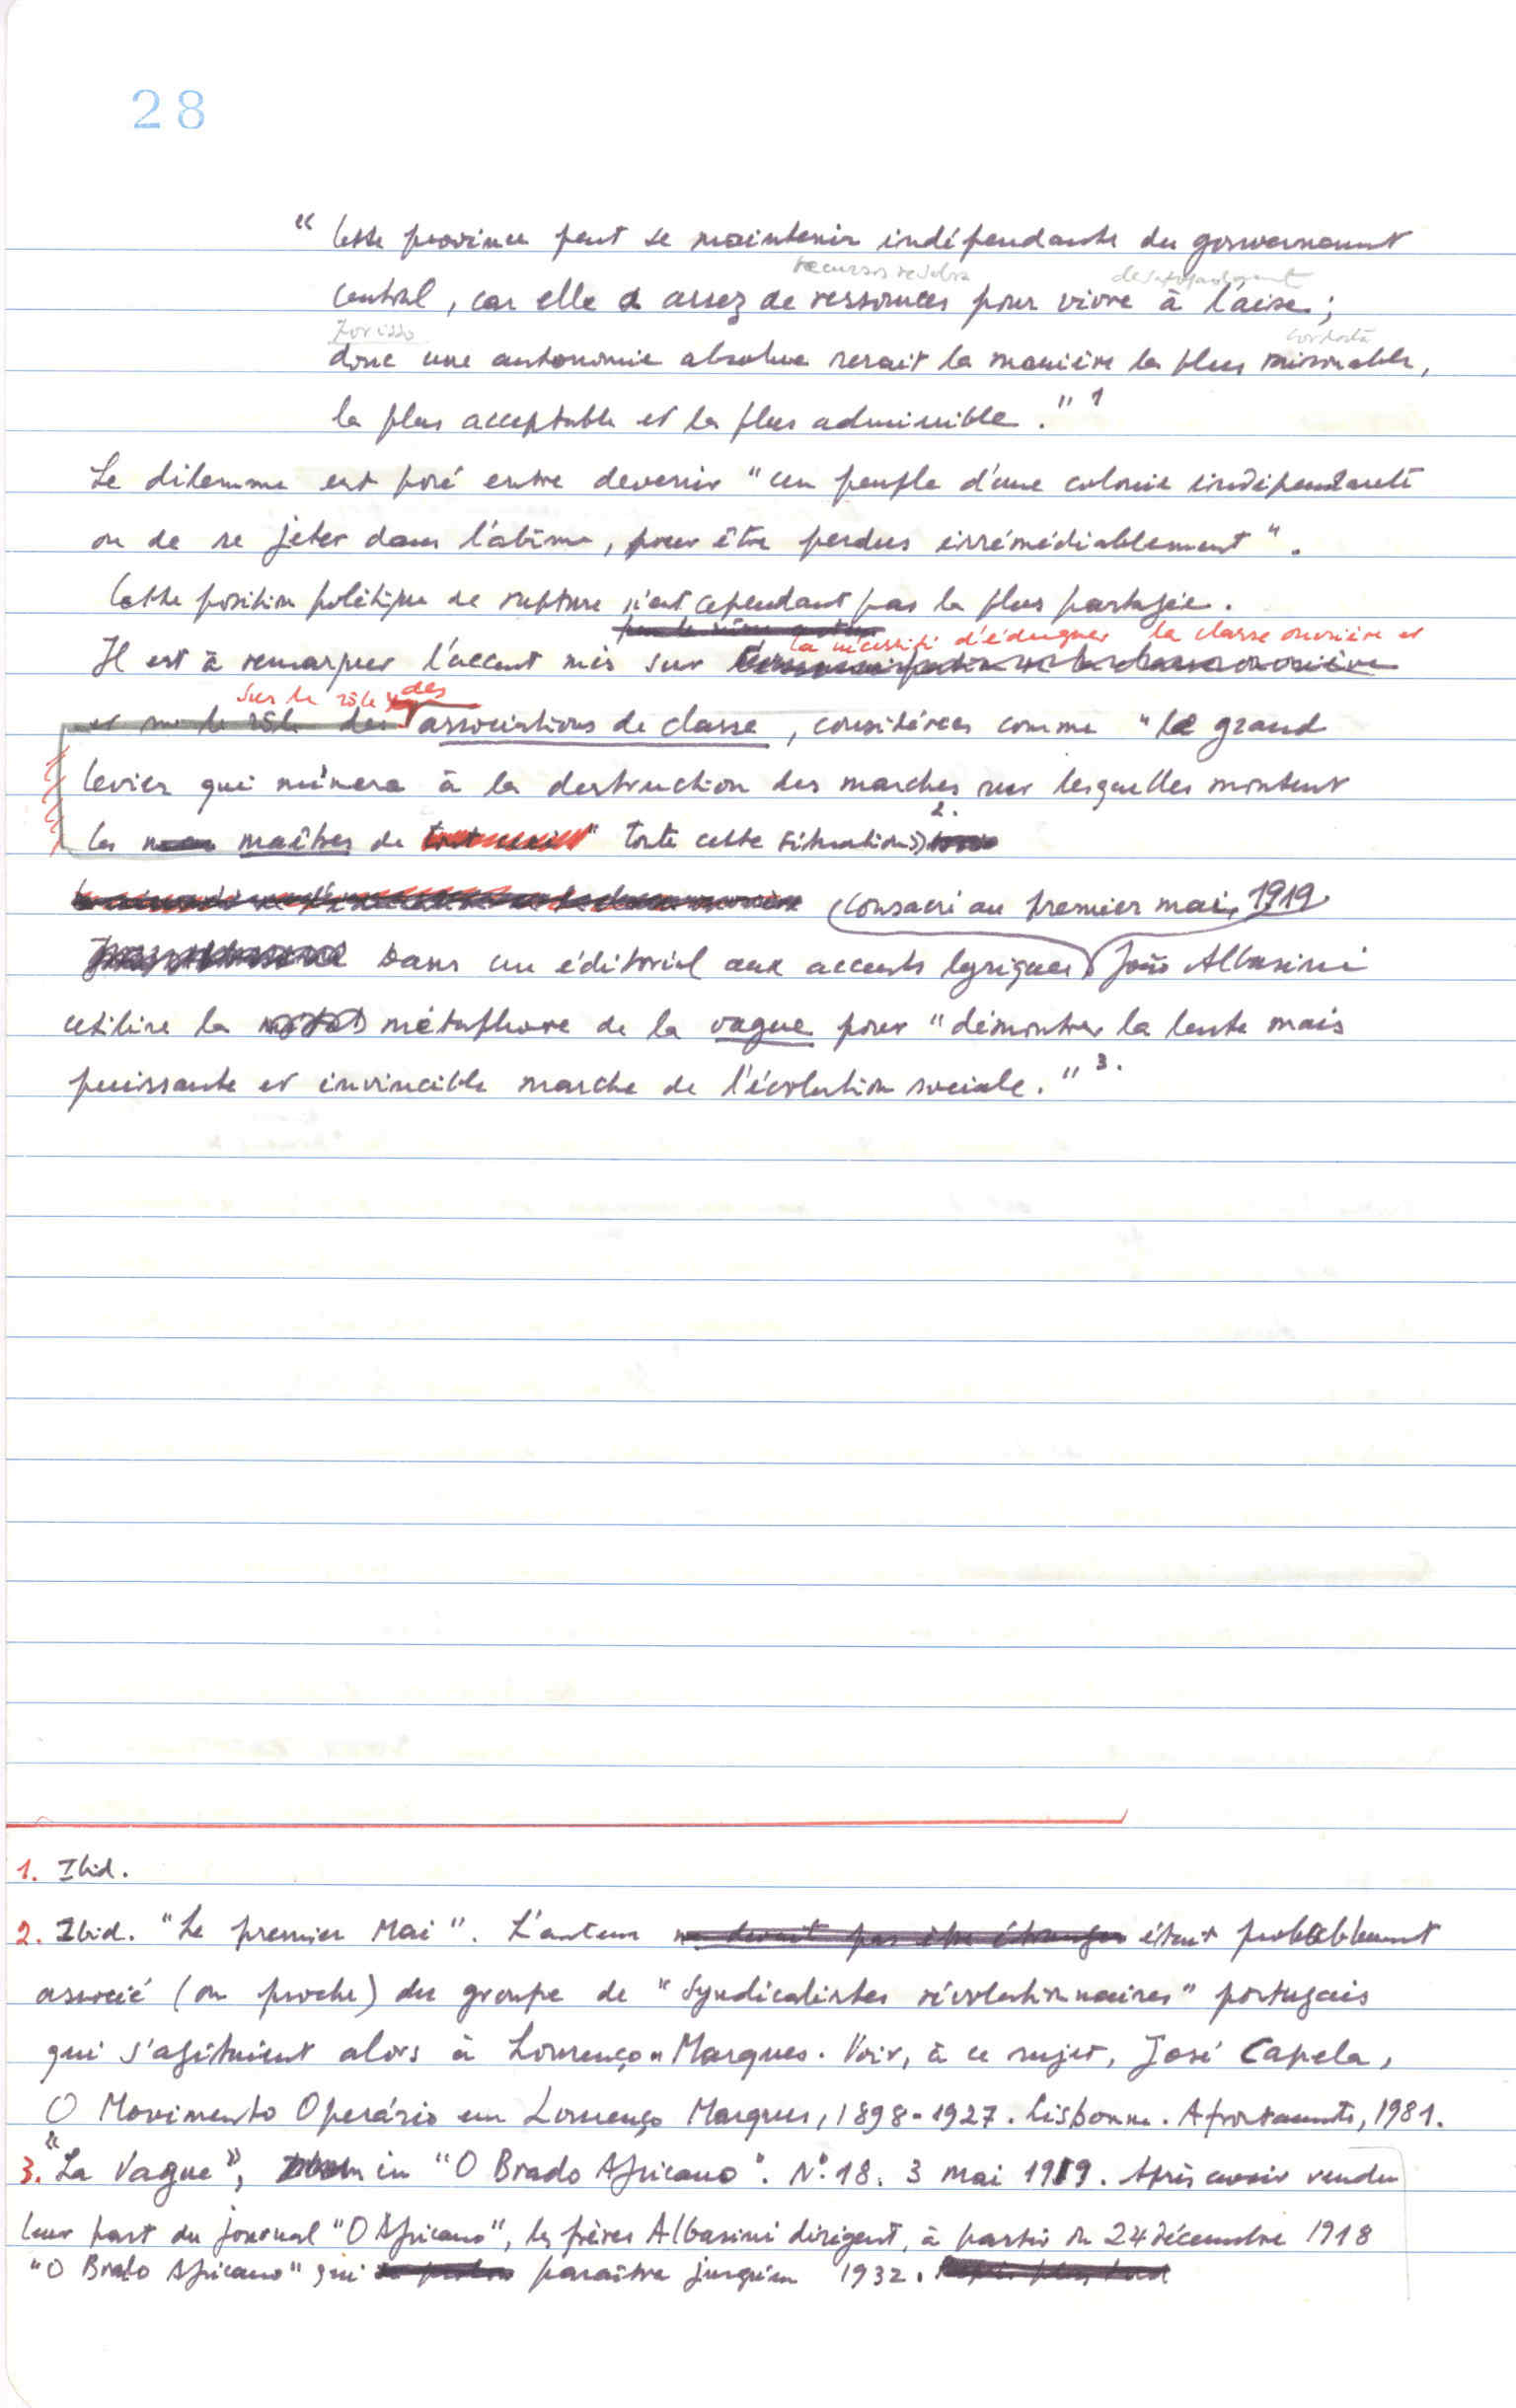 28
" Cette province peut se maintenir indépendante du gouvernement
recursos
central, car elle a assez de ressources pour vivre à l'aise ;
Por isso
donc une autonomie absolue serait la manière la plus raisonnable,
la plus acceptable et la plus admissible. " 1
Le dilemme est posé entre devenir " un peuple d'une colonie indépendante
ou de se jeter dans l'abîme, pour être perdus irrémédiablement ".
Cette position politique de rupture n'est cependant pas la plus partagée.
la nécessité d'éduquer la classe ouvrière et
Il est à remarquer l'accent mis sur
sur le rôle des
et sur le rôle des associations de classe, considérées comme " le grand
levier qui mènera à la destruction des marches sur lesquelles montent
les maîtres de tout ceci " toute cette situation » 2.
(consacré au premier mai, 1919
Dans un éditorial aux accents lyriques João Albasini
utilise la métaphore de la vague pour " démontrer la lente mais
puissante et invincible marche de l'évolution sociale. " 3.
1. Ibid.
2. Ibid. " Le premier Mai ". L'auteur ne devait pas être étranger était probablement
associé (ou proche) du groupe de " Syndicalistes révolutionnaires " portugais
qui s'agitaient alors à Lourenço Marques. Voir, à ce sujet, José Capela,
O Movimento Operário em Lourenço Marques, 1898-1927. Lisbonne. Afrontamento, 1981.
3. " La Vague ", in " O Brado Africano ". Nº 18. 3 mai 1919. Après avoir vendu
leur part du journal " O Africano ", les frères Albasini dirigent, à partir du 24 décembre 1918
" O Brado Africano " qui paraîtra jusqu'en 1932.